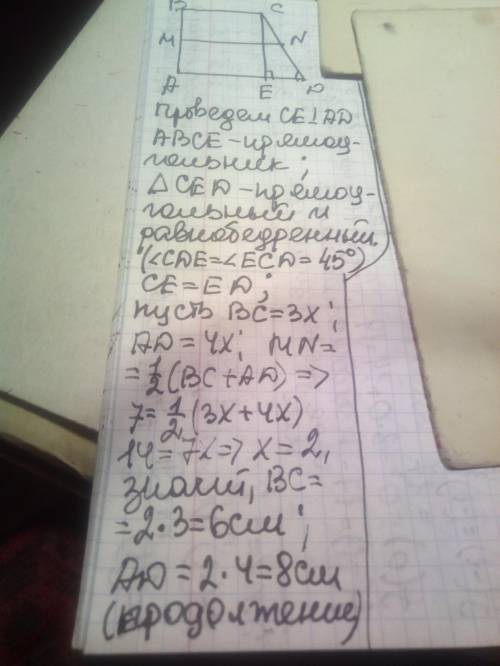 B C
M N
A E D
проведем CE⊥AD
ABCE-прямоу-
гольник;
△CED-прямоу-
гольный и
равнобедренный.
(∠CDE=∠ECD=45°)
CE=ED;
пусть BC=3x;
AD=4x; MN=
=1/2(BC+AD) =>
7=1/2(3x+4x)
14=7x=> x=2,
значит, BC=
=2·3=6см;
AD=2·4=8см
(продолжение)